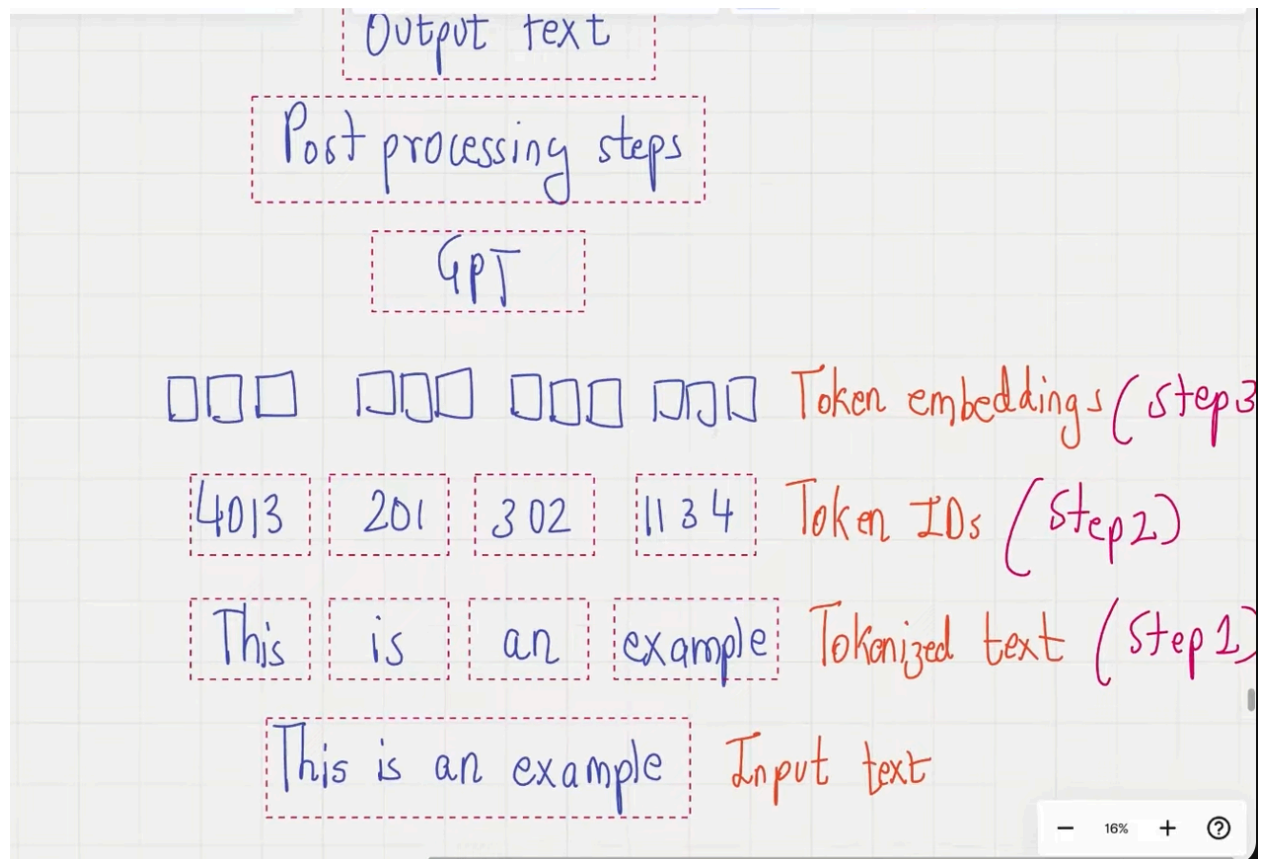 Output text
Post processing steps
GPT
Token embeddings (Step3
4013 201 302 1134 Token IDs (Step2)
This is an example Tokenized text (Step 1)
This is an example Input text
16%